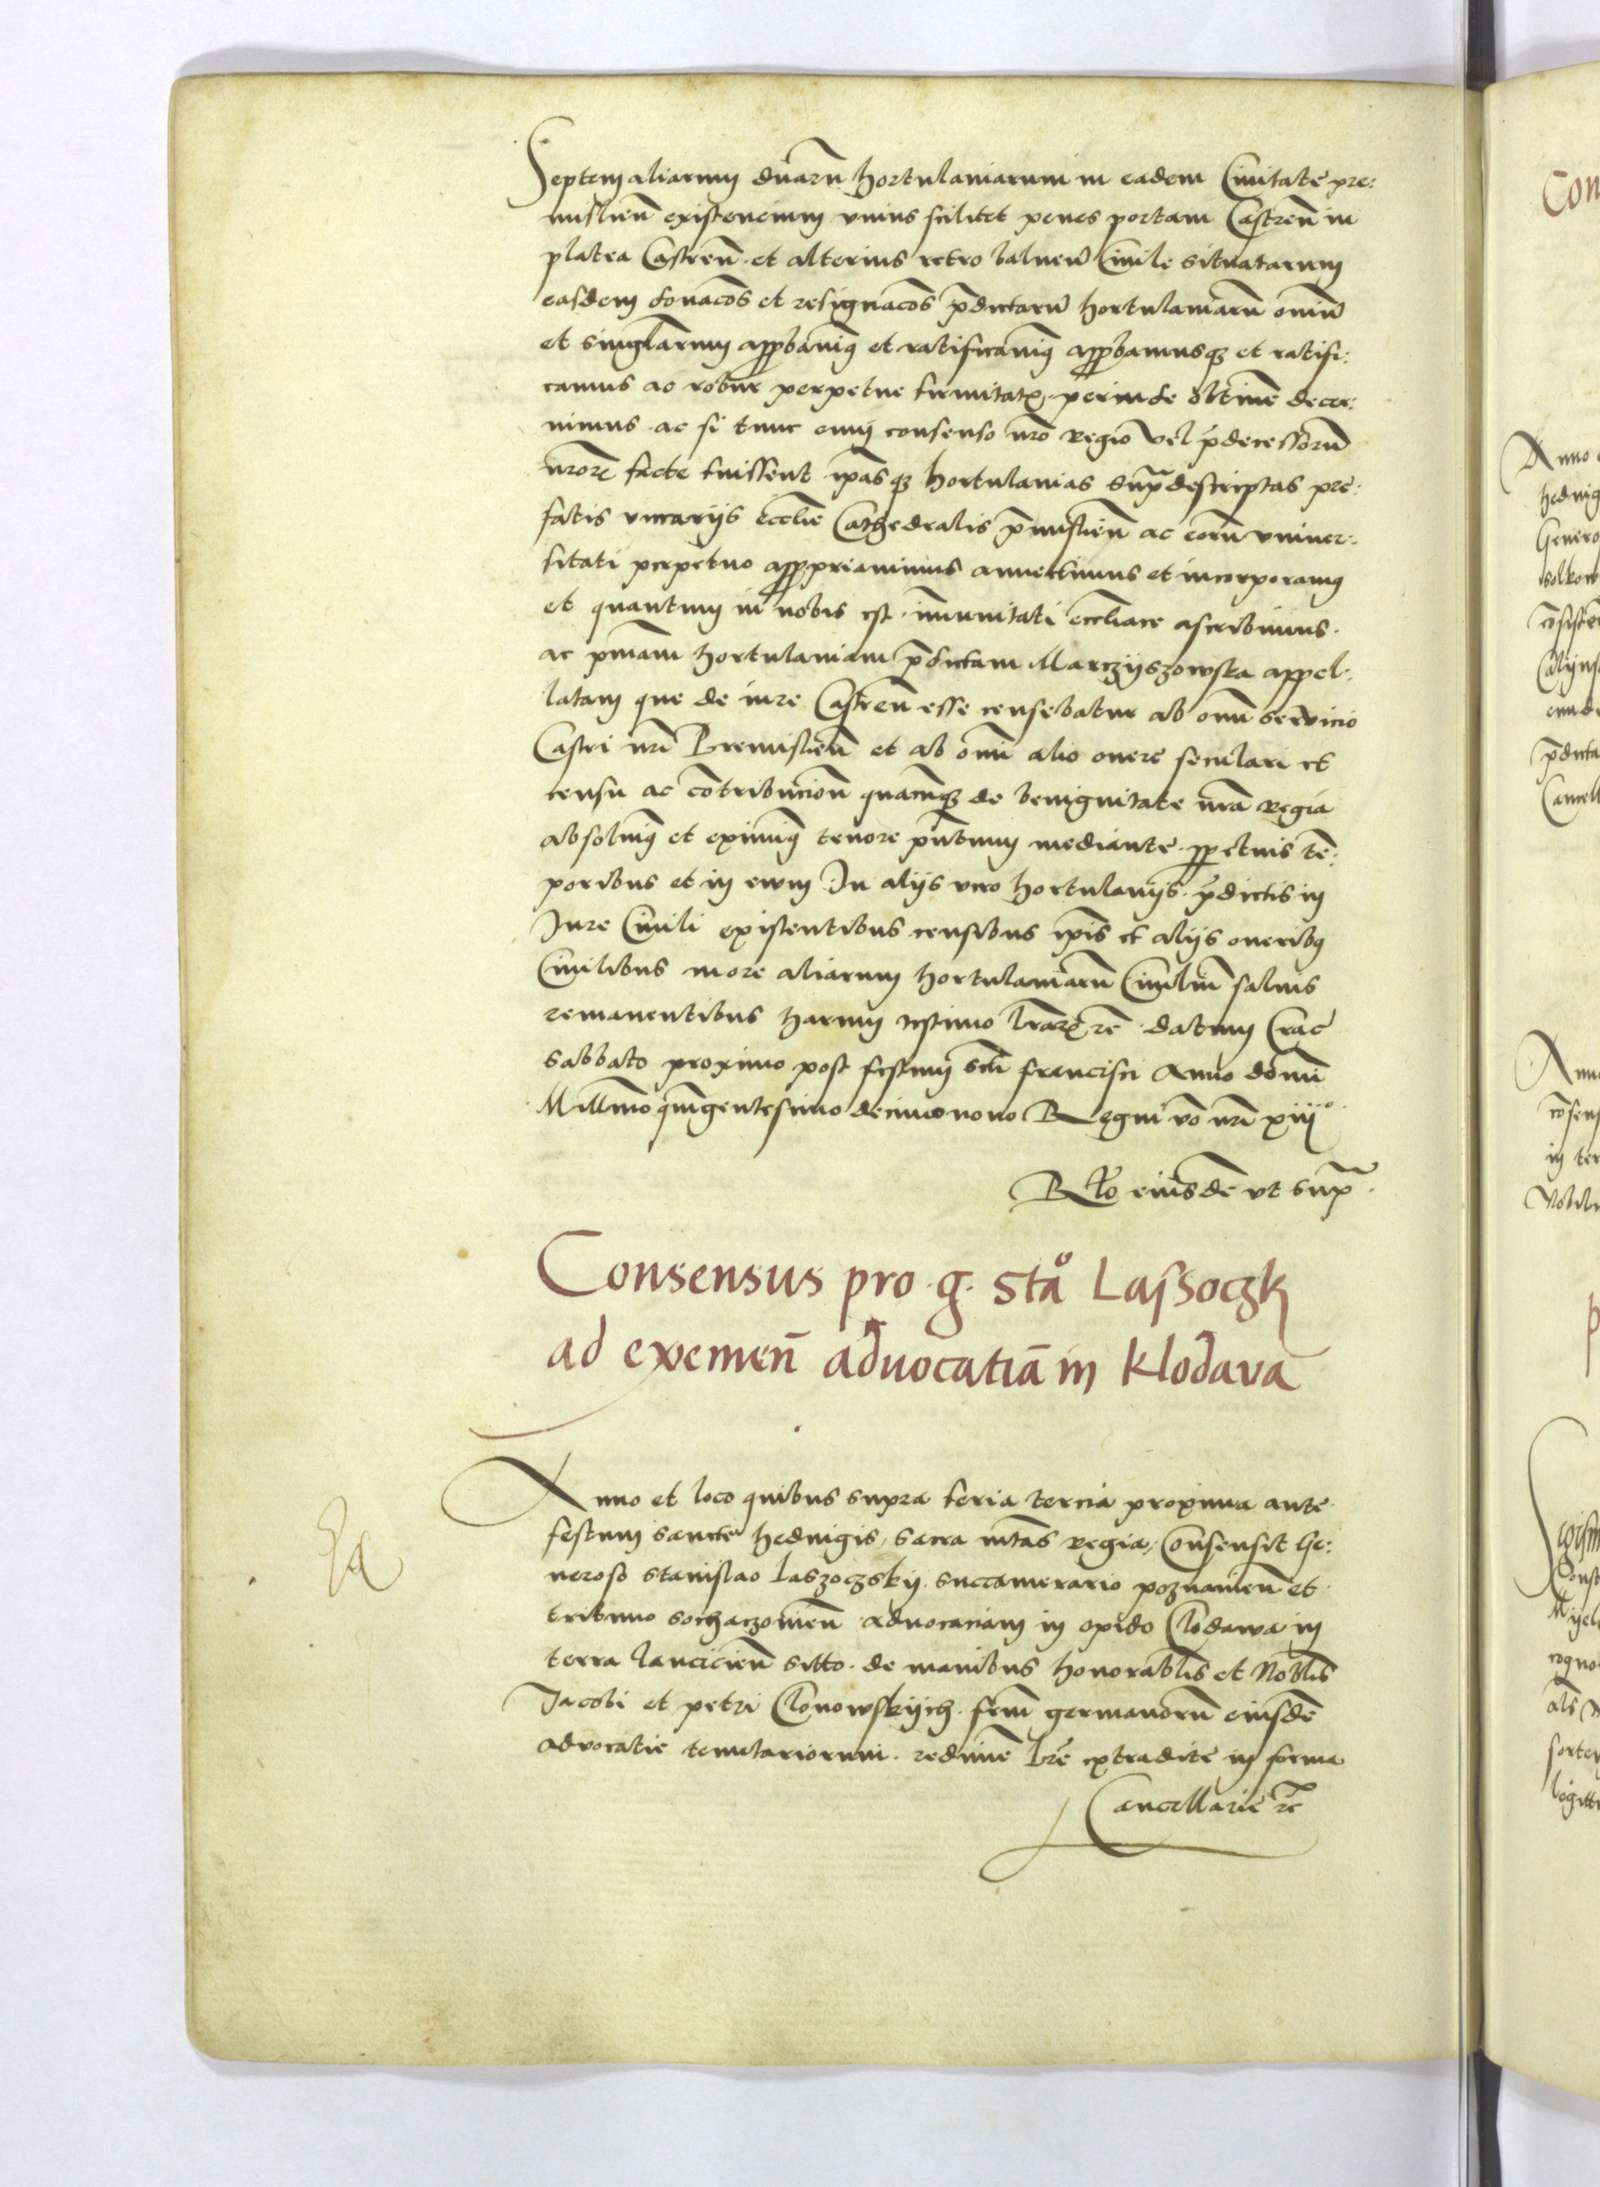 Septem aliarum duarū hortulaniarum in eadem Civitate pre:
mislieñ existencium unius scilicet penes portam Castreñ in
platea Castreñ. et alterius retro balneū Civile situatarum
easdem donacōs et resignacōs p̄dictarū hortulaniarū omniū
et singlarum appbavimq et ratificavimq appbamusqȝ et ratifi:
camus ac robur perpetue firmitatꝭ. perinde obtinē decer:
nimus ac si tunc cum consenso nr̄o regio vel p̄decessorū
nr̄orꝝ facte fuissent ip̄asqȝ hortulanias sup̄descriptas pre:
fatis vicarijs eccl̄ie Cathedralis p̄mislieñ ac eorū univer:
sitati perpetuo appropriavimus annectimus et incorporamq
et quantum in nobis est. im̄unitati eccl̄iace ascribimus.
ac pmam hortulaniam p̄dictam Marczijszowska appel:
latam que de iure Castreñ esse censebatur ab om̄i servicio
Castri nr̄i Premislieñ et ab om̄i alio onere seculari et
censu ac cōtribucioñ quacūqȝ de benignitate nr̄a regia
absolvimq et eximimq tenore pn̄tium mediante. ppetuis tē:
poribus et in evum In alijs vero hortulanijs. p̄dictis in
Jure Civili existentibus censibus ip̄is et alijs oneribq
Civilibus more aliarum hortulaniarū Civiliū salvis
remanentibus harum testimo lr̄arꝝ rc̄ datum Crac̄
sabbato proximo post festum sc̄ti francisci Anno domī
Mill̄imo quīgentesimo decimonono Regni vō nr̄i xiij°.
Rl̄o eiusdē ut sup̄.
Consensus pro .g. Staº Lassoczk
ad exemeñ advocatiā in Klodava
Anno et loco quibus supra feria tercia proxima ante
festum sancte hedvigis, sacra mtās regia, Consensit Ge:
neroso Stanislao Laszoczskij. succamerario poznanieñ et
tribuno sochaczovieñ advocaciam in opido Clodawa in
terra lancicieñ sitto. de manibus honorabl̄is et Nobl̄is
Jacobi et petri Clonowskijch. frm̄ germanorū eiusdē
advocatie tenutariorum. redimē lr̄e extradite in forma
Cancellarie rc̄